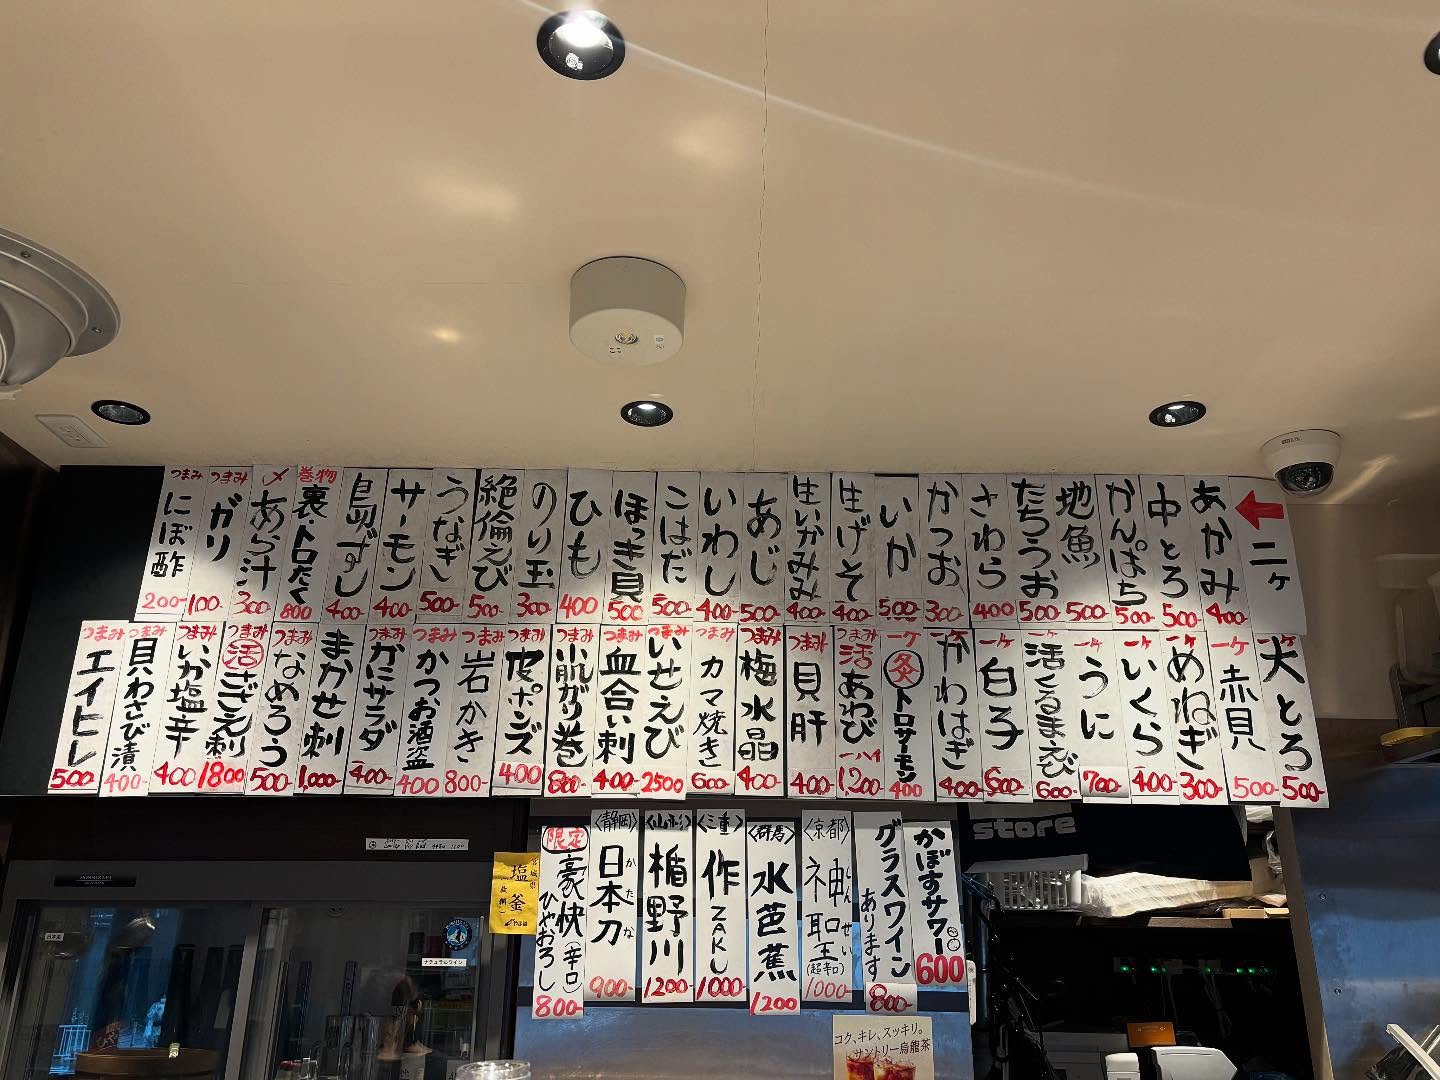 二ヶ
あかみ 400
中とろ 500-
かんぱち 500-
地魚 500-
たちうお 500-
さわら 400
かつお 300-
いか 500-
生げそ 400-
生いかみみ 400-
あじ 500-
いわし 400-
こはだ 500-
ほっき貝 500
ひも 400
のり玉 300-
絶倫えび 500-
うなぎ 500-
サーモン 400-
島ずし 400-
巻物 裏・トロたく 800
〆 あら汁 300-
つまみ ガリ 100-
つまみ にぼ酢 200-
一ヶ 大とろ 500-
一ヶ 赤貝 500-
一ヶ めねぎ 300-
一ヶ いくら 400-
一ヶ うに 700-
一ヶ 活くるまえび 600-
一ヶ 白子 600-
一ヶ かわはぎ 400-
一ケ 炙トロサーモン 400
つまみ 活あわび 一ハイ 1,200
つまみ 貝肝 400-
つまみ 梅水晶 400-
つまみ カマ焼き 600-
つまみ いせえび 2500
つまみ 血合い刺 400-
つまみ 小肌ガリ巻 800-
つまみ 皮ポンズ 400
つまみ 岩かき 800-
つまみ かつお酒盗 400
つまみ かにサラダ 400-
まかせ刺 1,000-
つまみ なめろう 500-
つまみ 活 さざえ刺 1800
つまみ いか塩辛 400
つまみ 貝わさび漬 400-
つまみ エイヒレ 500
かぼすサワー 600
グラスワイン あります 800-
〈京都〉 神聖 しんせい (超辛口) 1000-
〈群馬〉 水芭蕉 1200
〈三重〉 作 ZAKU 1000-
〈山形〉 楯野川 1200-
〈静岡〉 日本刀 かたな 900-
限定 豪快(辛口) ひやおろし 800-
宮城県
塩釜
store
コク、キレ、スッキリ。
サントリー烏龍茶
ナチュラルワイン
日本酒
HOSHIZAKI